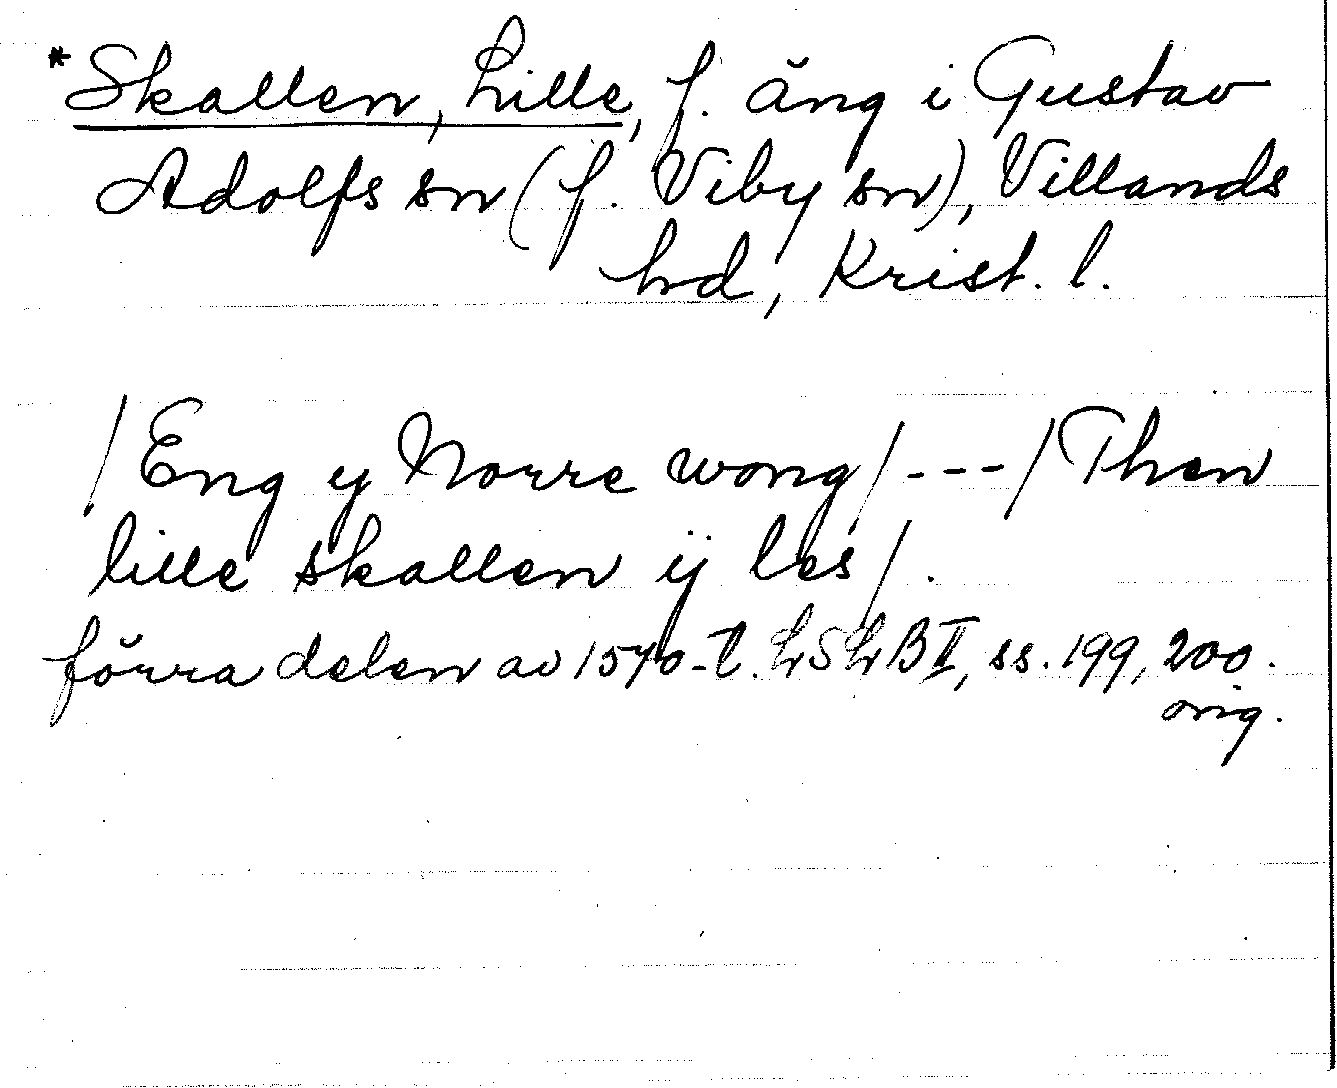 *Skallen, Lille, f. äng i Gustav
Adolfs sn (f. Viby sn), Villands
hd, Krist. l.
/Eng y Norre wong/---/Then
lille skallen ÿ les/.
förra delen av 1540-t. LSLB II, ss. 199, 200.
orig.